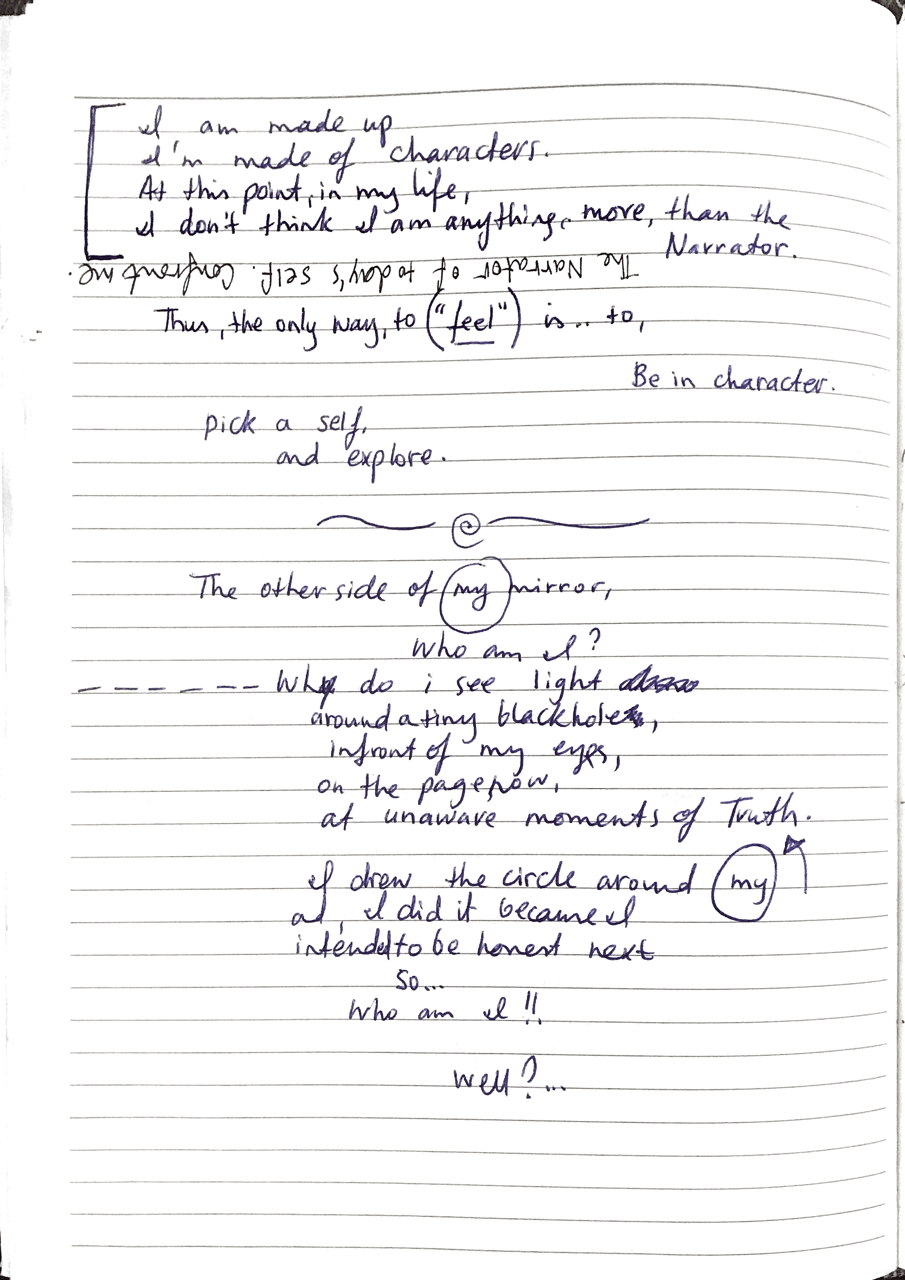 I am made up
I'm made of characters.
At this point, in my life,
I don't think I am anything, more, than the
Narrator.
The Narrator of today's self. Confront me.
Thus, the only way, to ("feel") is.. to,
Be in character.
pick a self,
and explore.
The other side of my mirror,
Who am I?
Why do i see light
around a tiny blackhole,
infront of my eyes,
on the page, now,
at unaware moments of Truth.
I drew the circle around my
ad, I did it because I
intended to be honest next
So...
Who am I!!
Well?...